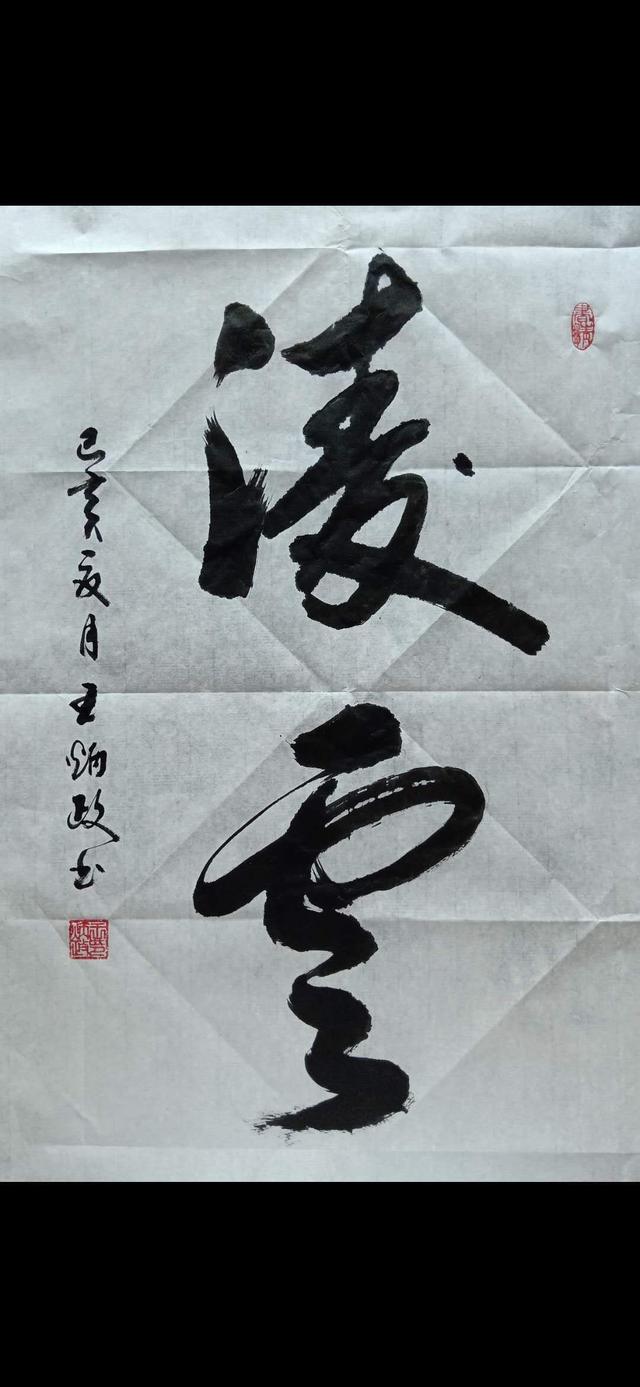 凌雲
己亥夏月王炳政书